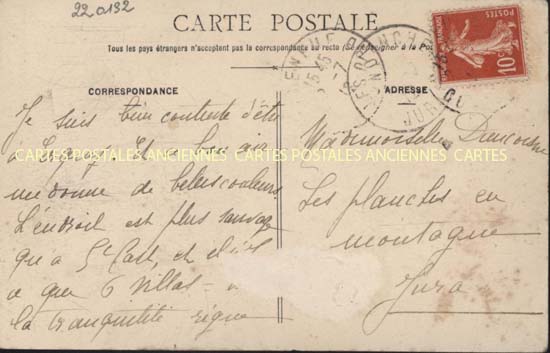 22a132
CARTE POSTALE
Tous les pays étrangers n'acceptent pas la correspondance au recto (Se renseigner à la Poste)
CORRESPONDANCE
ADRESSE
POSTES
10c
Je suis bien contente d'être
à
bon air
me donne de belles couleurs
L'endroit est plus sauvage
qu'à St Cast, et il n'y
a que 6 villas
la tranquilité règne
Mademoiselle
Les planches en
montagne
Jura
CARTES POSTALES ANCIENNES CARTES POSTALES ANCIENNES CARTES